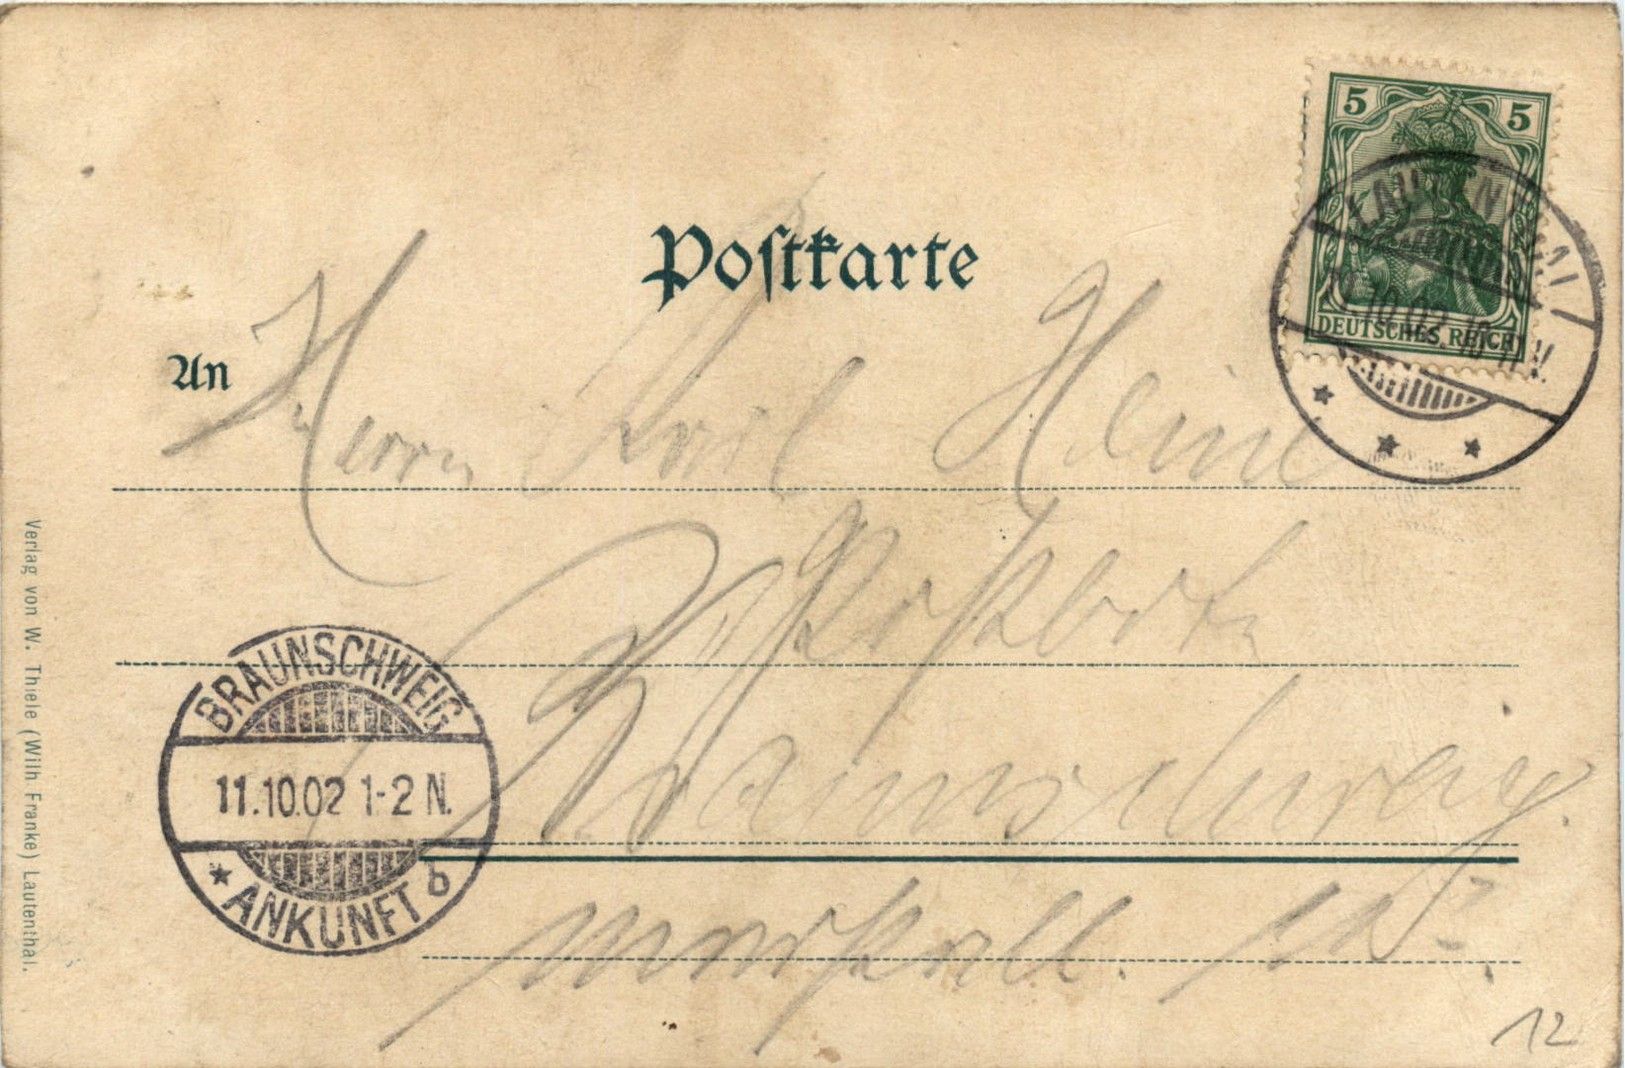 Postkarte
5 5
DEUTSCHES REICH
LAUTENTHAL
10.02. 10-11 V.
An
Herrn Karl Heine
Postbote
Braunschweig.
BRAUNSCHWEIG
11.10.02 1-2 N.
* ANKUNFT b
Verlag von W. Thiele (Wilh Franke) Lautenthal.
12